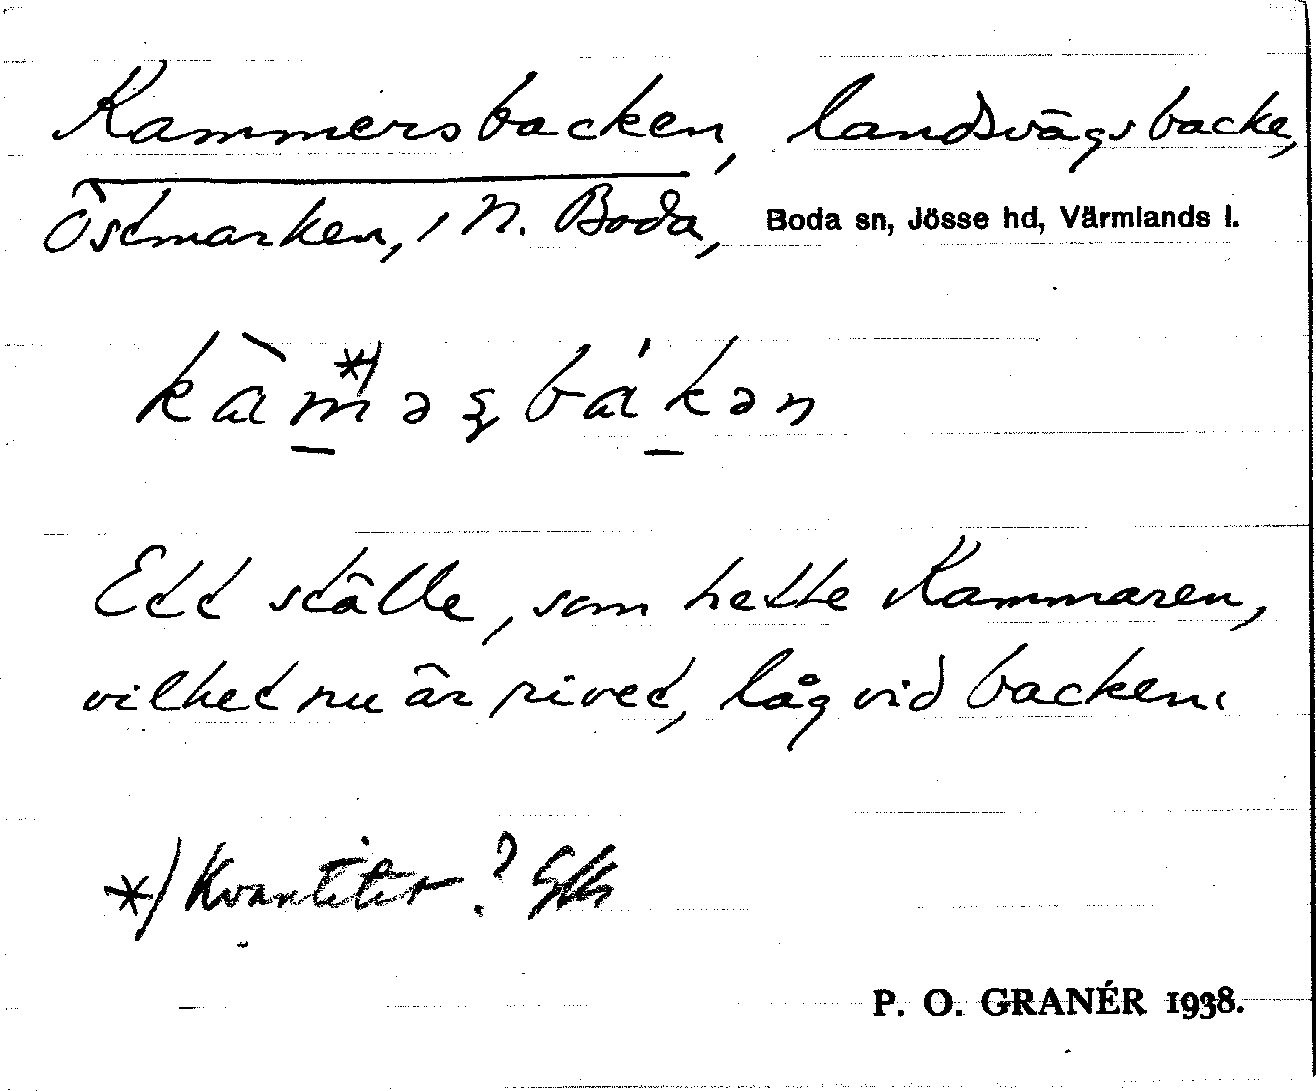 Kammersbacken, landsvägsbacke,
Östmarken, i N. Boda, Boda sn, Jösse hd, Värmlands l.
kàm̲*)əʂbák̲ən
Ett ställe, som hette Kammaren,
vilket nu är rivet, låg vid backen.
*) Kvantitet?
P. O. GRANÉR 1938.